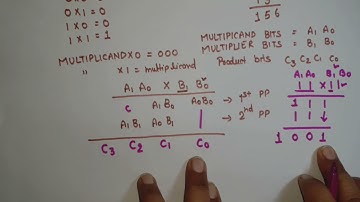 0 X 1 = 0
1 X 0 = 0
1 X 1 = 1
156
MULTIPLICAND X 0 = 000
" X 1 = multiplicand
MULTIPICAND BITS = A1 A0
MULTIPLIER BITS = B1 B0
Product bits C3 C2 C1 C0
A1 A0 X B1 B0
C A1B0 A0B0 → 1st PP
A1B1 A0B1 → 2nd PP
C3 C2 C1 C0
A1 A0 B1 B0
1 1 X 1 1
1 1
1 1 ↓
1 0 0 1